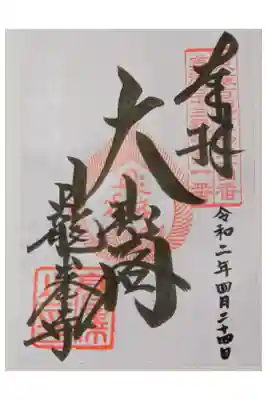 奉拝
令和二年四月二十四日
大悲閣
日龍峯寺